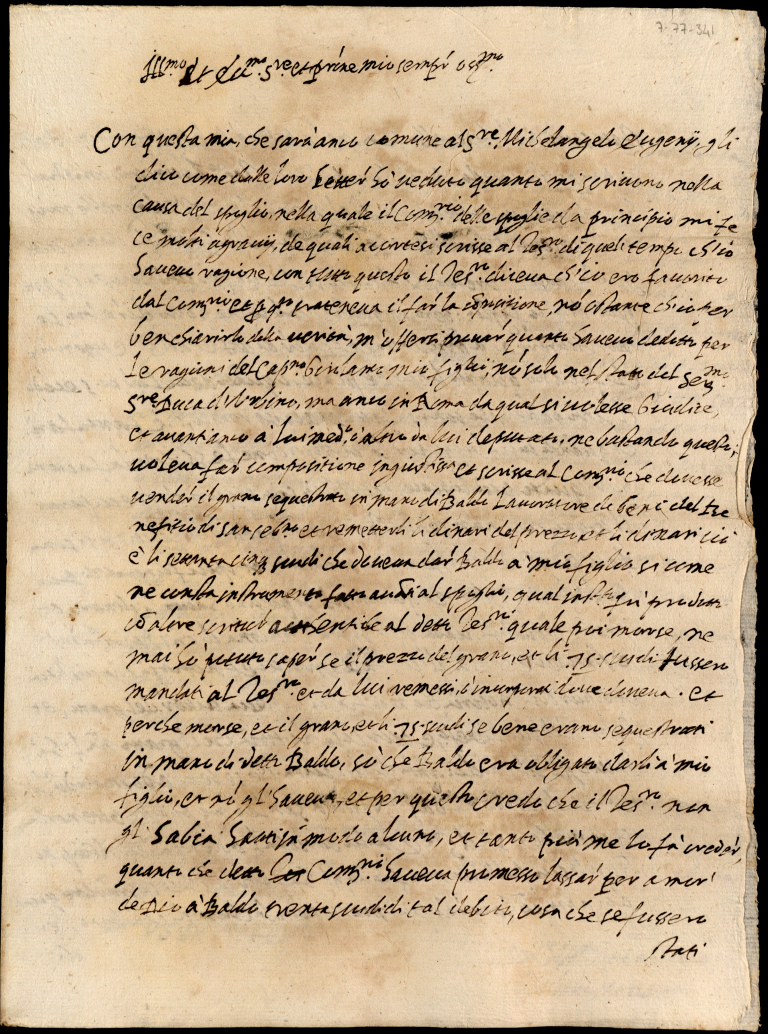 7-77-341
Ill.mo et Ecc.mo S.re et prone mio sempr oss.mo
Con questa mia, che sarà anco comune al S.re Michelangelo Eugenij, gli
dico come dalle loro letter hò ueduto quanto mi scriuono nella
causa del spoglio, nella quale il Com.rio delle spoglie da principio mi fe
ce molti agrauij, de quali accortosi scrisse al Tes.ro di quel tempo ch'io
haueuo ragione, con tutto questo il Tes.ro diceua ch'io ero fauorito
dal Com.rio et p q.to trateneua il far la cõpositione, nõ ostante ch'io per
ben chiarirlo della uerità, m'offersi prouar quanto haueuo dedotto per
le ragioni del Cap.no Girolamo mio figlio, nõ solo nel stato del Ser.mo
S.re Duca d'Urbino, ma anco in Roma da qual si uolesse Giudice,
et auanti anco à lui med.o ò altro da lui deputato, ne bastando questo,
uoleua far compositione ingiusta et scrisse al Com.rio che douesse
uender il grano sequestrato in mano di Baldo Lauoratore de beni del Be
nefitio di san seb.no et remetterli li dinari del prezzo et li denari cio
è li settanta cinq scudi che doueua dar Baldo à mio figlio si come
ne consta instrumento fatto auãti al spoglio, qual inst.to fu prodotto
cõ altre scritture autentiche al detto Tes.ro quale poi morse, ne
mai hò potuto saper se il prezzo del grano, et li 75 scudi fussero
mandati al Tes.ro et da lui remessi, ò incorporati doue doueua. et
perche morse, et il grano, et li 75 scudi se bene erano sequestrati
in mano di detto Baldo, sò che Baldo era obligato darli à mio
figlio, et nõ gl'haueua, et per questo credo che il Tes.ro non
gl'habia hauti in modo alcuno, et tanto più me lo fà creder,
quanto che detto Com.rio haueua promesso lassar per amor
de Dio à Baldo trenta scudi di tal debito, cosa che se fussero
stati